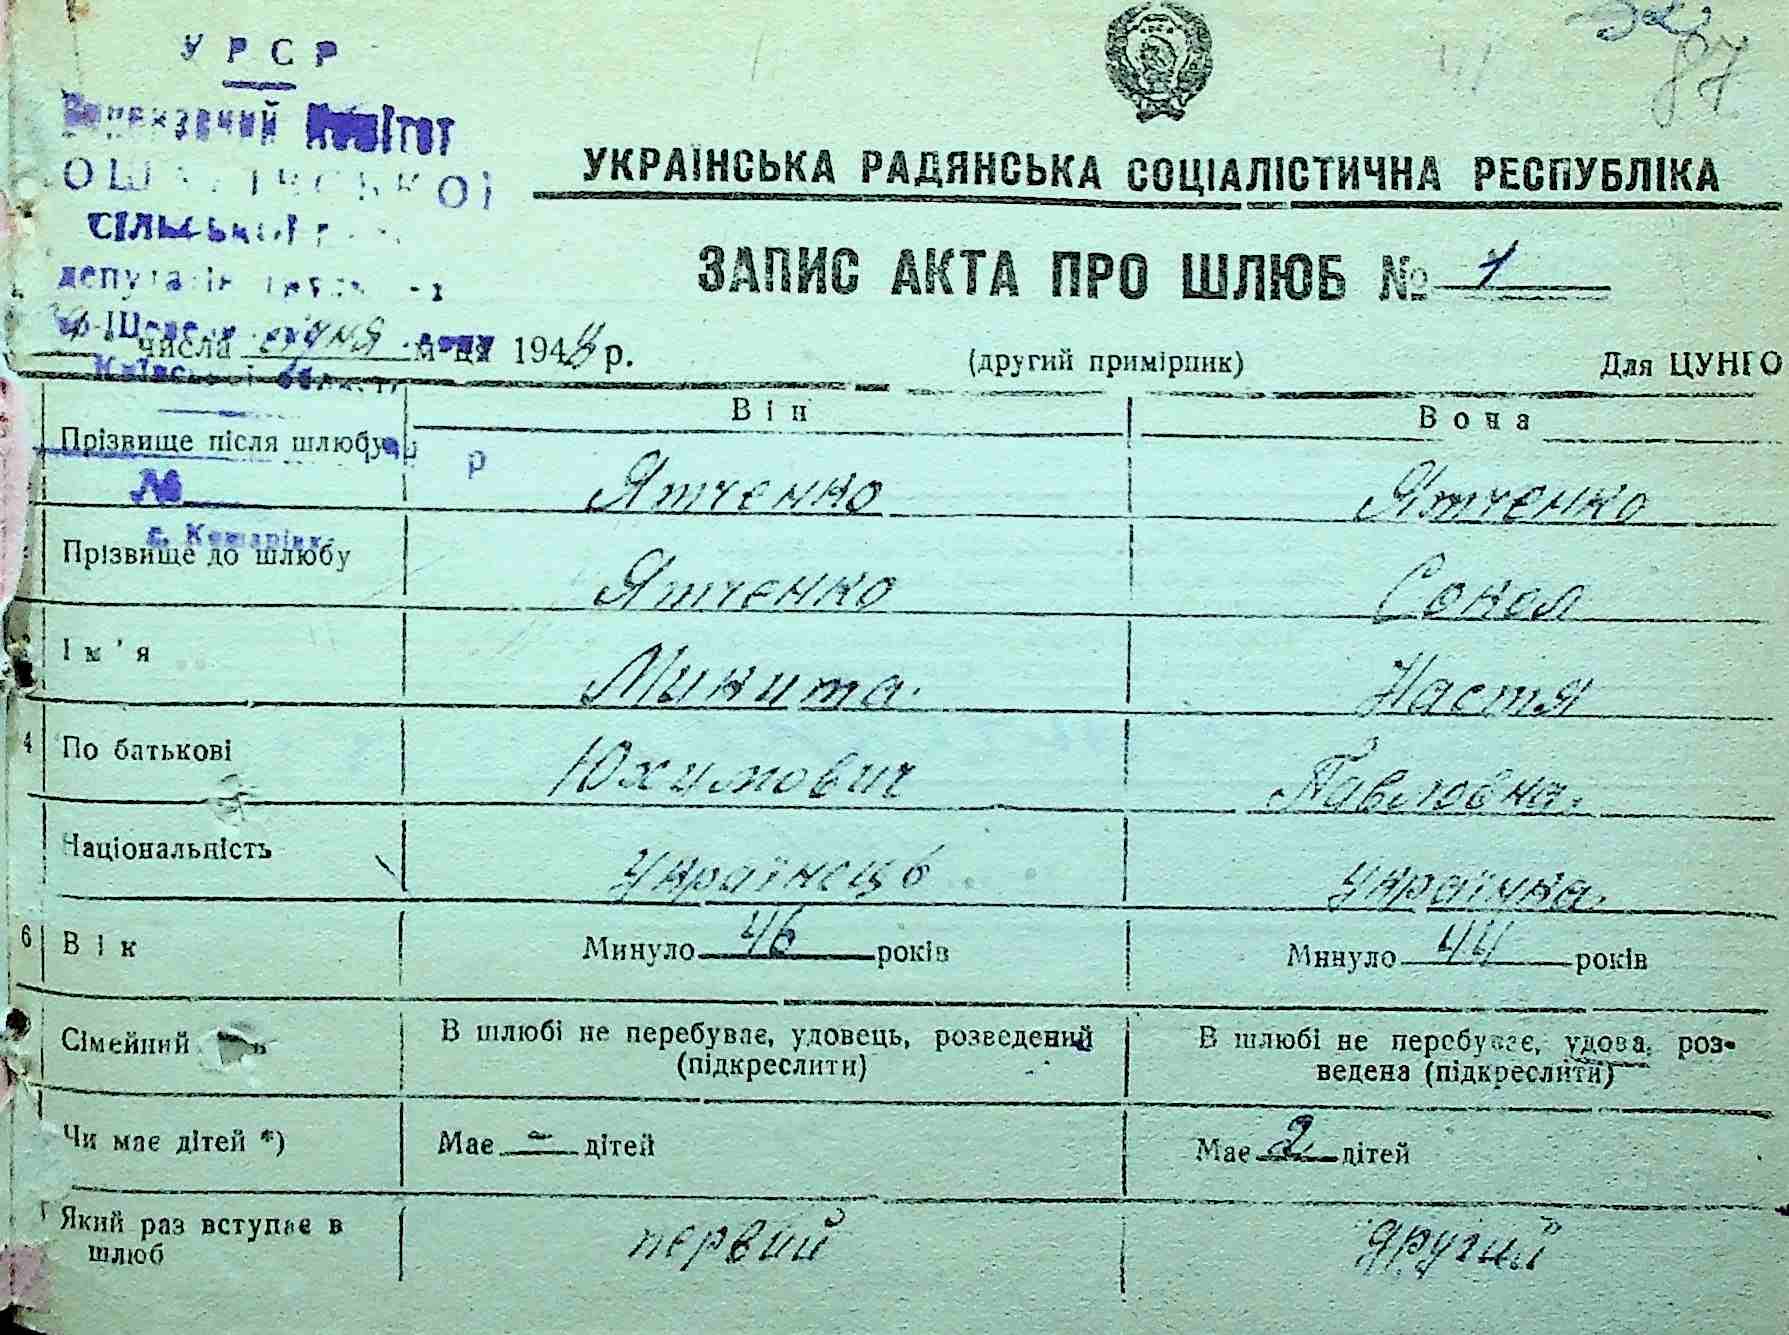 УРСР
Виконавчий Комітет
сільської
депутатів
87
УКРАЇНСЬКА РАДЯНСЬКА СОЦІАЛІСТИЧНА РЕСПУБЛІКА
ЗАПИС АКТА ПРО ШЛЮБ № 1
числа січня м-ця 194 р.
(другий примірник) Для ЦУНГО
Київської області
Він Вона
Прізвище після шлюбу Ятченко Ятченко
№
Прізвище до шлюбу Ятченко Сокол
Ім'я Микита Настя
4 По батькові Юхимович Павловна
Національність Українець українка
6 Вік Минуло 46 років Минуло 44 років
Сімейний В шлюбі не перебуває, удовець, розведений (підкреслити) В шлюбі не перебуває, удова, розведена (підкреслити)
Чи має дітей *) Має – дітей Має 2 дітей
Який раз вступає в шлюб первий другий